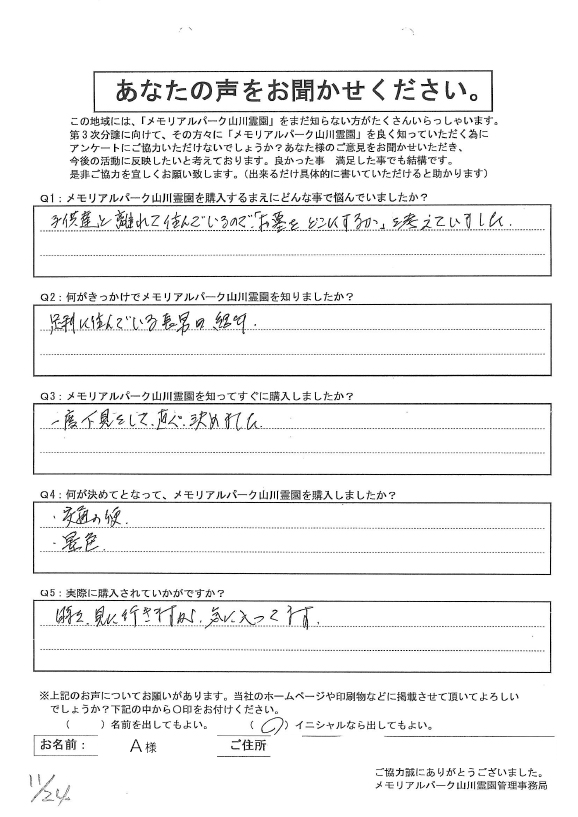 あなたの声をお聞かせください。
この地域には、「メモリアルパーク山川霊園」をまだ知らない方がたくさんいらっしゃいます。
第3次分譲に向けて、その方々に「メモリアルパーク山川霊園」を良く知っていただく為に
アンケートにご協力いただけないでしょうか？あなた様のご意見をお聞かせいただき、
今後の活動に反映したいと考えております。良かった事　満足した事でも結構です。
是非ご協力を宜しくお願い致します。（出来るだけ具体的に書いていただけると助かります）
Q1：メモリアルパーク山川霊園を購入するまえにどんな事で悩んでいましたか？
子供達と離れて住んでいるので「お墓をどこにするか」を考えていました。
Q2：何がきっかけでメモリアルパーク山川霊園を知りましたか？
足利に住んでいる長男の紹介.
Q3：メモリアルパーク山川霊園を知ってすぐに購入しましたか？
一度下見をして、直ぐ、決めました
Q4：何が決めてとなって、メモリアルパーク山川霊園を購入しましたか？
・交通の便.
・景色.
Q5：実際に購入されていかがですか？
時々、見に行きますが、気に入ってます.
※上記のお声についてお願いがあります。当社のホームページや印刷物などに掲載させて頂いてよろしい
でしょうか？下記の中から〇印をお付けください。
（　　）名前を出してもよい。　（ 〇 ）イニシャルなら出してもよい。
お名前：　A様　ご住所
ご協力誠にありがとうございました。
メモリアルパーク山川霊園管理事務局
11/24